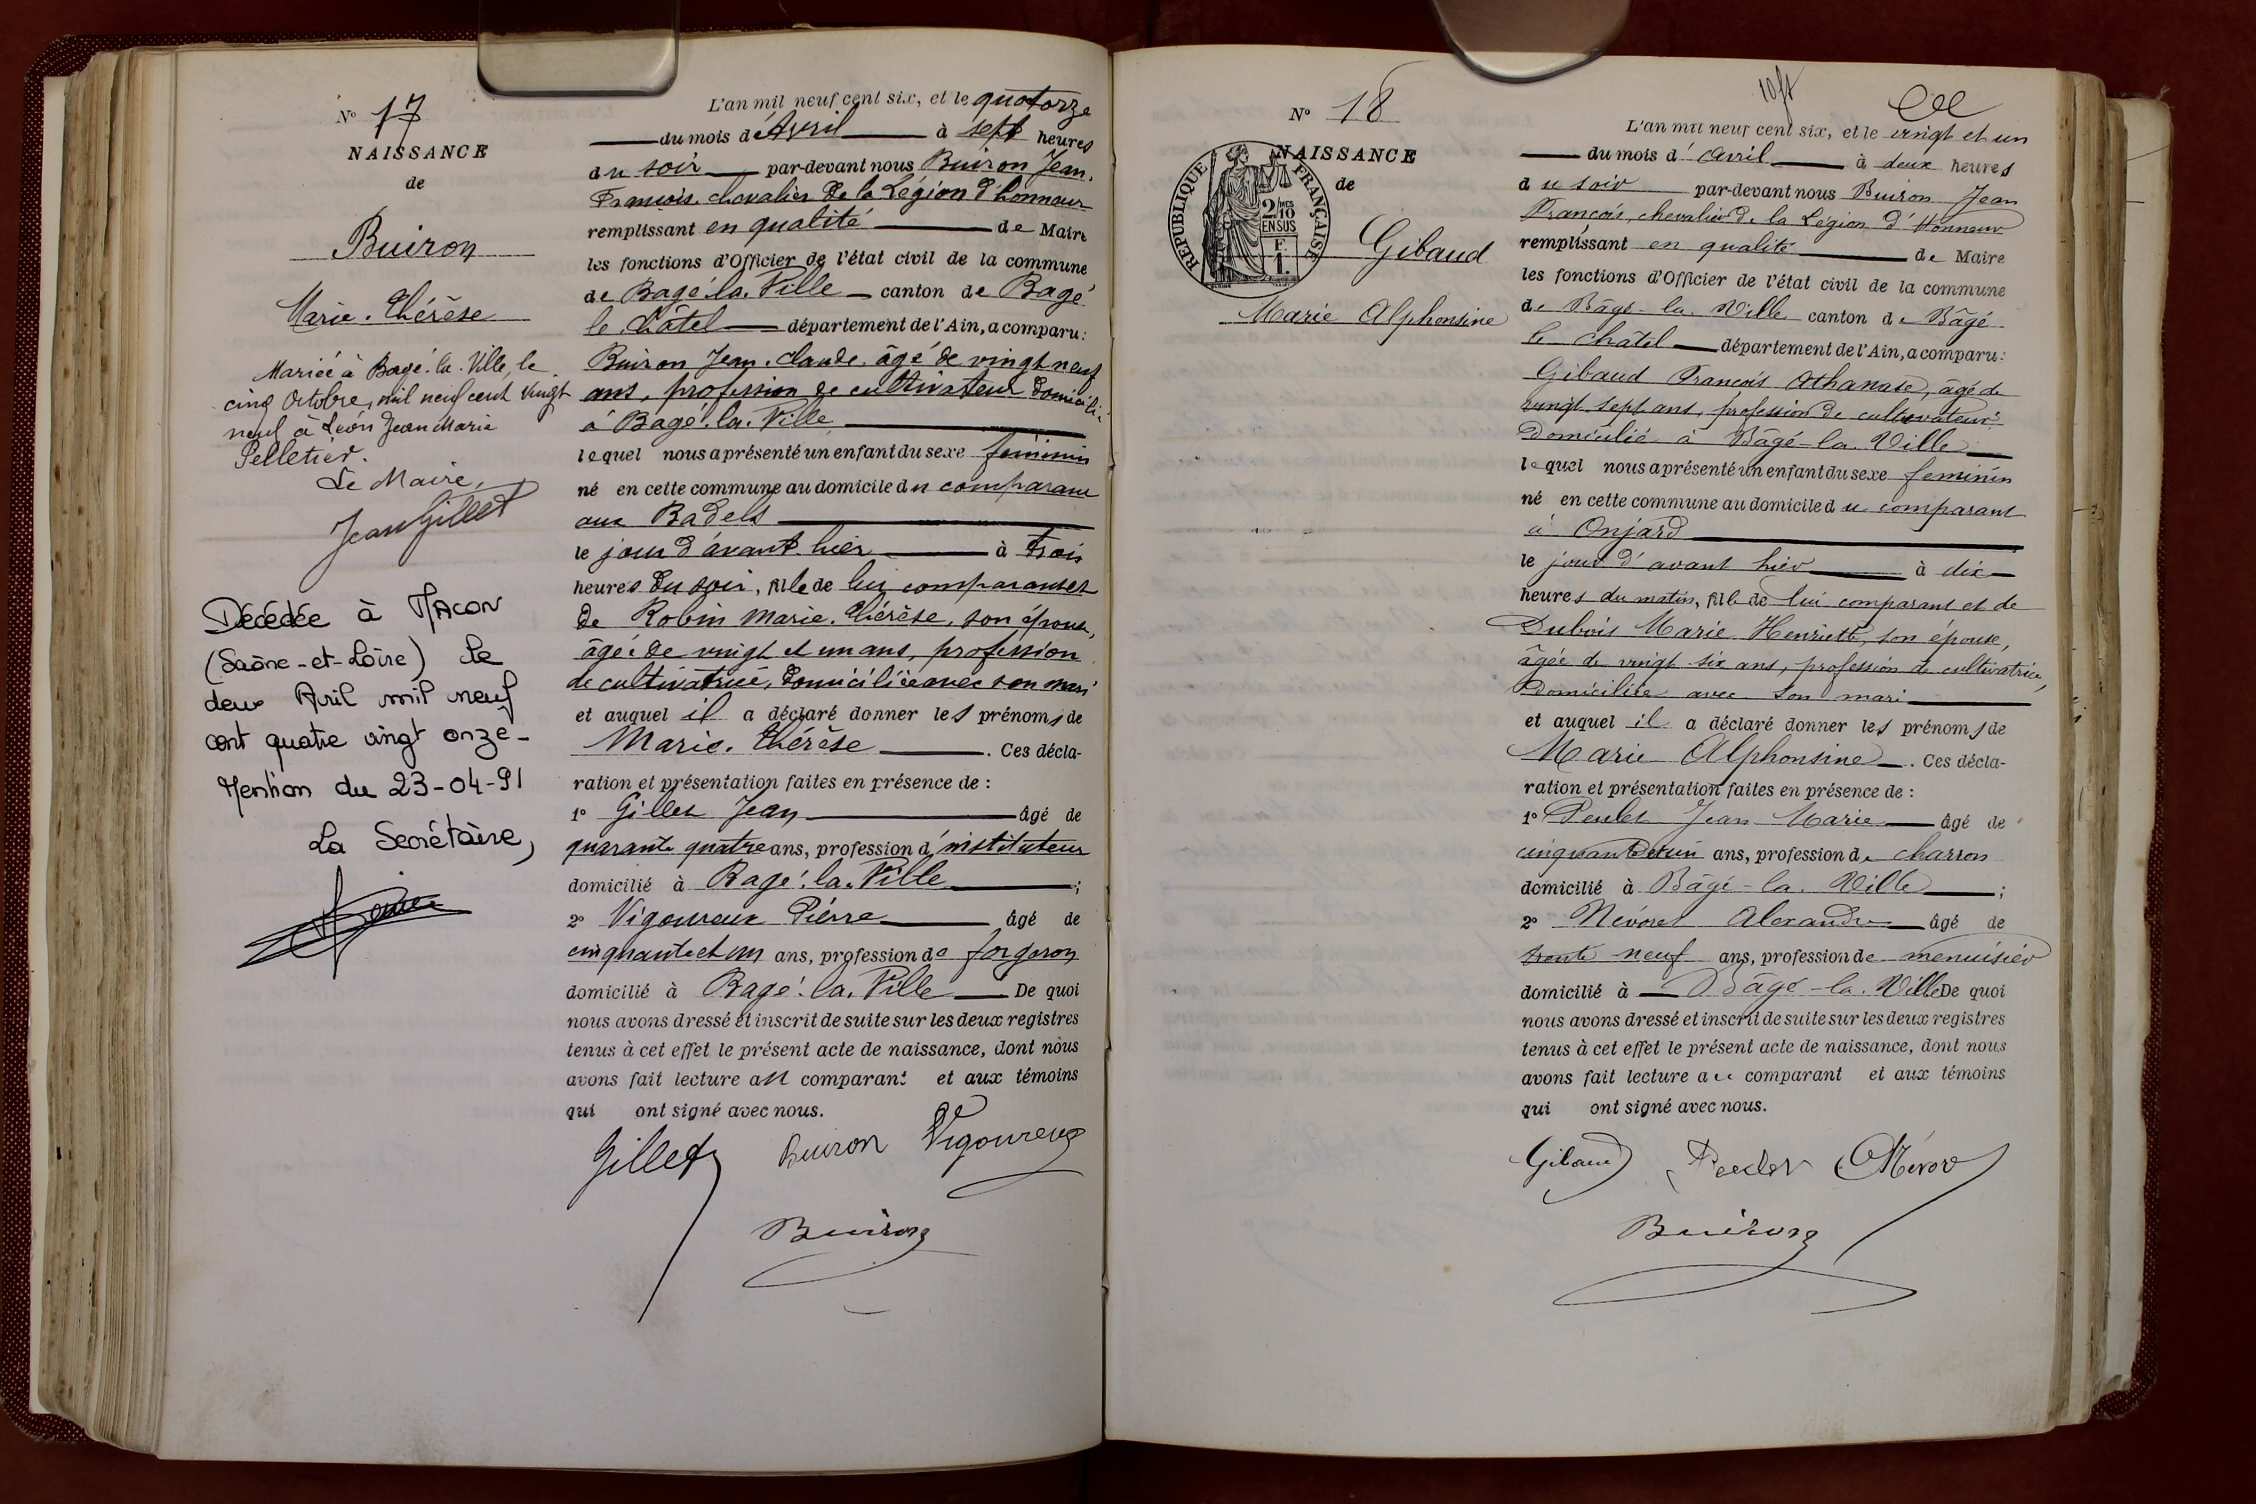 N° 17
NAISSANCE
de
Buiron
Marie. Thérèse
Mariée à Bagé. la. Ville, le
cinq Octobre, mil neuf cent vingt
neuf à Léon Jean Marie
Pelletier.
Le Maire,
Jean Gillet
Décédée à MACON
(Saône-et-Loire) le
deux Avril mil neuf
cent quatre vingt onze-
Mention du 23-04-91
La Secrétaire,
L'an mil neuf cent six, et le quatorze
du mois d'Avril à sept heures
du soir par-devant nous Buiron Jean.
François. chevalier de la Légion d'honneur
remplissant en qualité de Maire
les fonctions d'Officier de l'état civil de la commune
de Bagé. la. Ville canton de Bagé
le Châtel département de l'Ain, a comparu:
Buiron Jean. Claude. âgé de vingt neuf
ans, profession de cultivateur domicilié
à Bagé. la. Ville
lequel nous a présenté un enfant du sexe féminin
né en cette commune au domicile du comparant
aux Badels
le jour d'avant hier à trois
heures du soir, fille de lui comparant et
de Robin Marie. Thérèse, son épouse,
âgée de vingt et un ans, profession
de cultivatrice, domiciliée avec son mari
et auquel il a déclaré donner les prénoms de
Marie. Thérèse. Ces décla-
ration et présentation faites en présence de :
1° Gillet Jean âgé de
quarante quatre ans, profession d'instituteur
domicilié à Bagé. la. Ville ;
2° Vigoureux Pierre âgé de
cinquante et un ans, profession de forgeron
domicilié à Bagé. la. Ville De quoi
nous avons dressé et inscrit de suite sur les deux registres
tenus à cet effet le présent acte de naissance, dont nous
avons fait lecture au comparant et aux témoins
qui ont signé avec nous.
Gillet Buiron Vigoureux
Buiron
N° 18
NAISSANCE
de
RÉPUBLIQUE FRANÇAISE
2/10 MES
EN SUS
F.
1.
Gibaud
Marie Alphonsine
L'an mil neuf cent six, et le vingt et un
du mois d'avril à deux heures
du soir par-devant nous Buiron Jean
François, chevalier de la Légion d'Honneur
remplissant en qualité de Maire
les fonctions d'Officier de l'état civil de la commune
de Bâgé-la. Ville canton de Bâgé
le Châtel département de l'Ain, a comparu:
Gibaud François Athanase, âgé de
vingt sept ans, profession de cultivateur
domicilié à Bâgé-la. Ville
lequel nous a présenté un enfant du sexe feminin
né en cette commune au domicile du comparant
à Onjard
le jour d'avant hier à dix
heures du matin, fille de lui comparant et de
Dubois Marie Henriette, son épouse,
âgée de vingt-six ans, profession de cultivatrice,
domiciliée avec son mari
et auquel il a déclaré donner les prénoms de
Marie Alphonsine. Ces décla-
ration et présentation faites en présence de :
1° Peulet Jean Marie âgé de
cinquante un ans, profession de charron
domicilié à Bâgé-la. Ville ;
2° Névoret Alexandre âgé de
trente neuf ans, profession de menuisier
domicilié à Bâgé-la. Ville De quoi
nous avons dressé et inscrit de suite sur les deux registres
tenus à cet effet le présent acte de naissance, dont nous
avons fait lecture au comparant et aux témoins
qui ont signé avec nous.
Gibaud Peulet
Buiron